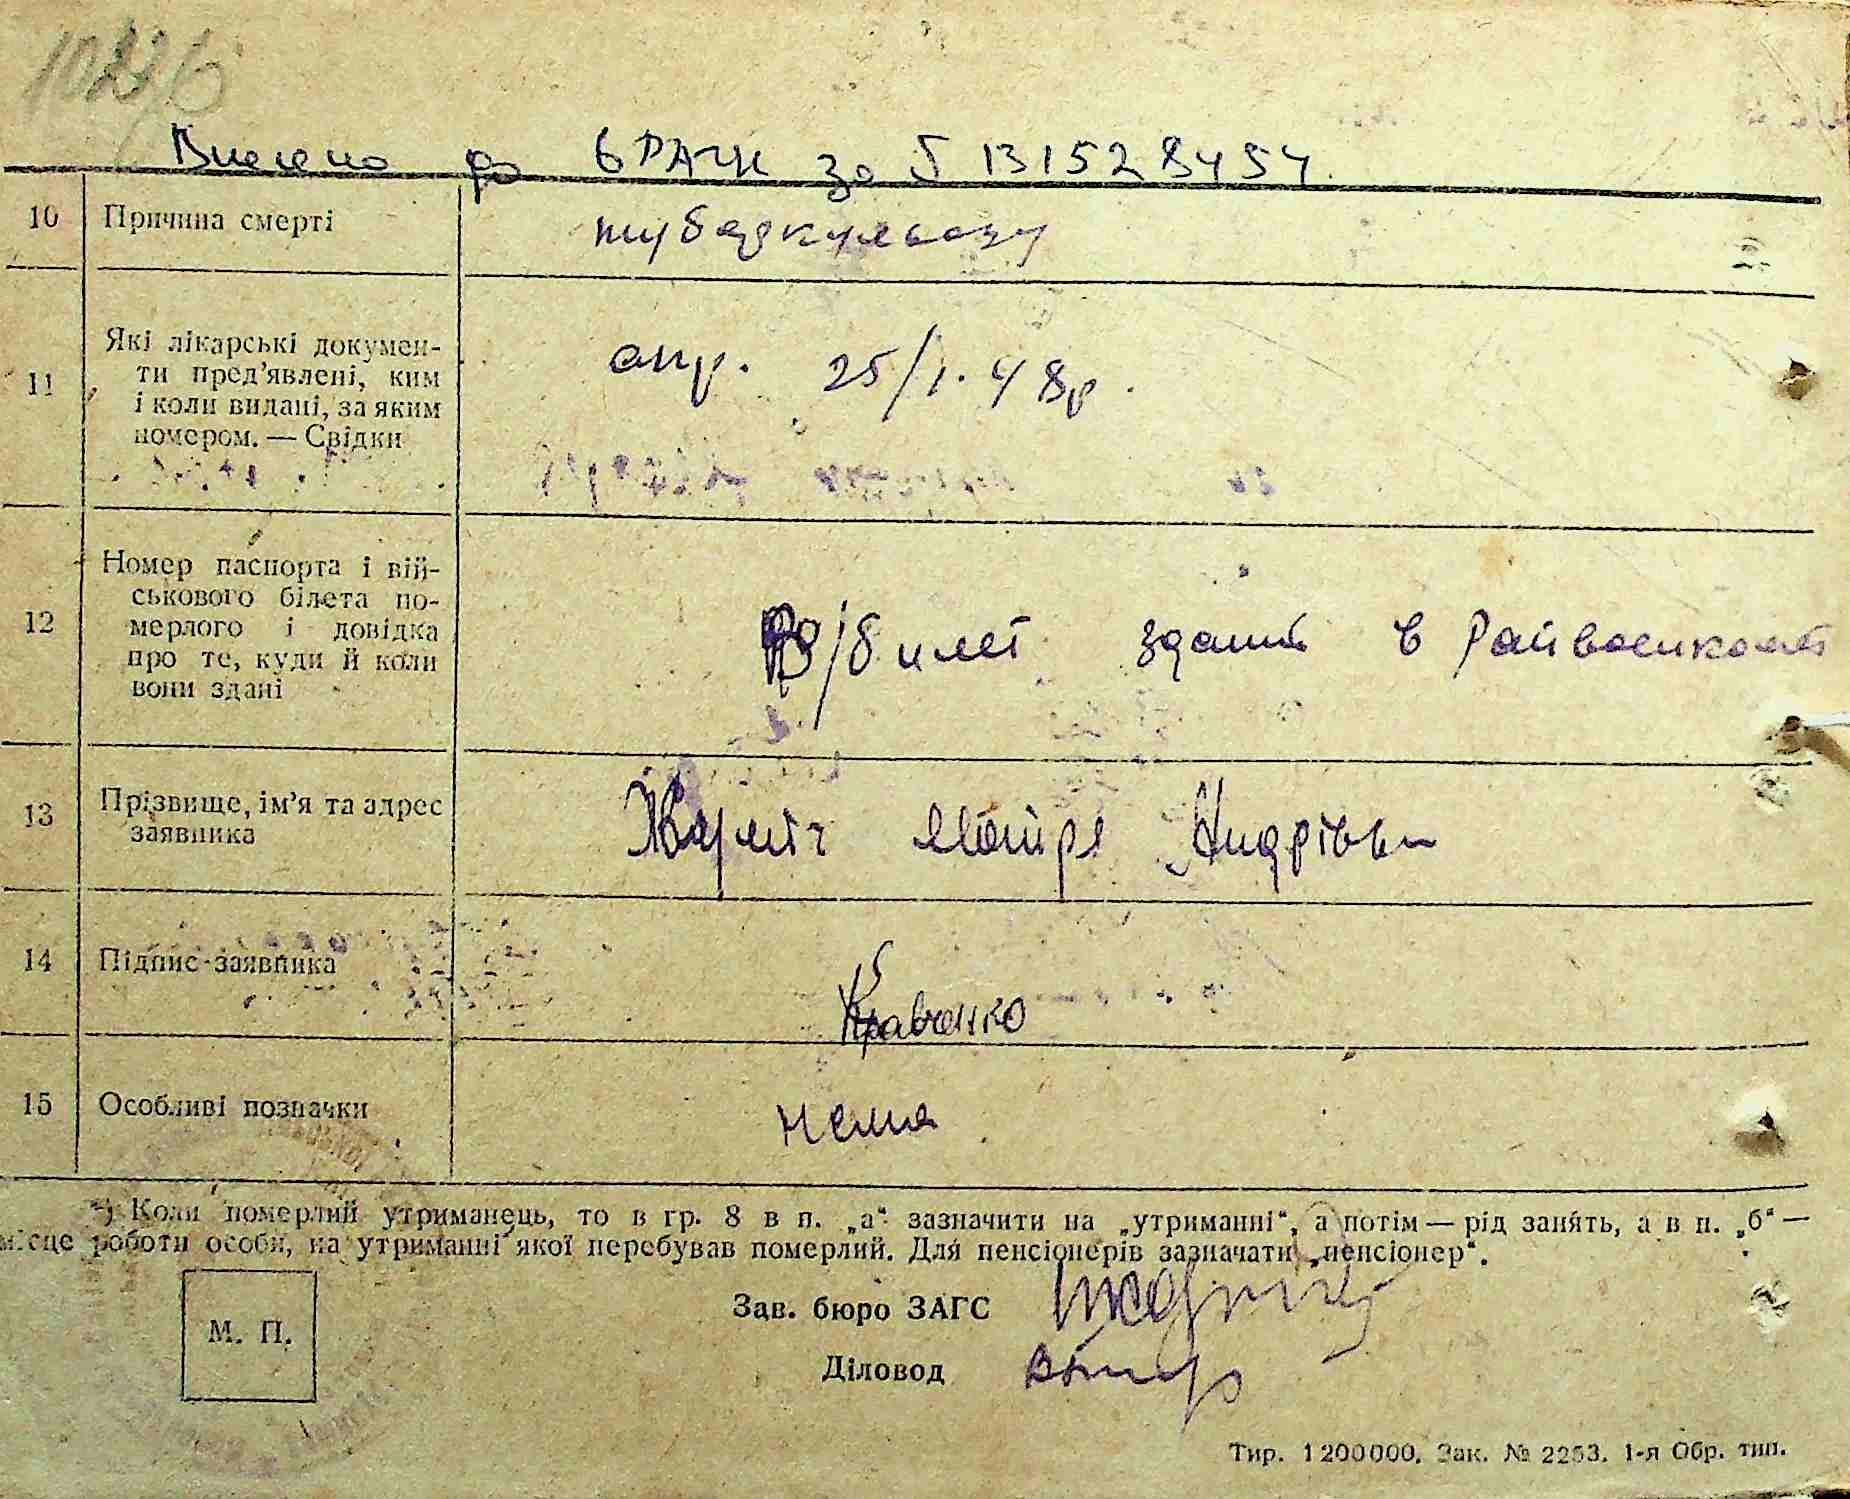 Внесено до ЄРАЧН за № 13152 8454
10 Причина смерті туберкульозу
11 Які лікарські докумен-
ти пред’явлені, ким
і коли видані, за яким
номером. — Свідки
25/1. 48р.
12 Номер паспорта і вій-
ськового білета по-
мерлого і довідка
про те, куди й коли
вони здані
В/билет зданий в Райвоенкомат
13 Прізвище, ім’я та адрес
заявника
Андріївн
14 Підпис заявника Кравченко
15 Особливі позначки нема
*) Коли померлий утриманець, то в гр. 8 в п. „а“ зазначити на „утриманні“, а потім — рід занять, а в п. „б“ —
місце роботи особи, на утриманні якої перебував померлий. Для пенсіонерів зазначати „пенсіонер“.
Зав. бюро ЗАГС
М. П.
Діловод
Тир. 1200000. Зак. № 2253. 1-я Обр. тип.